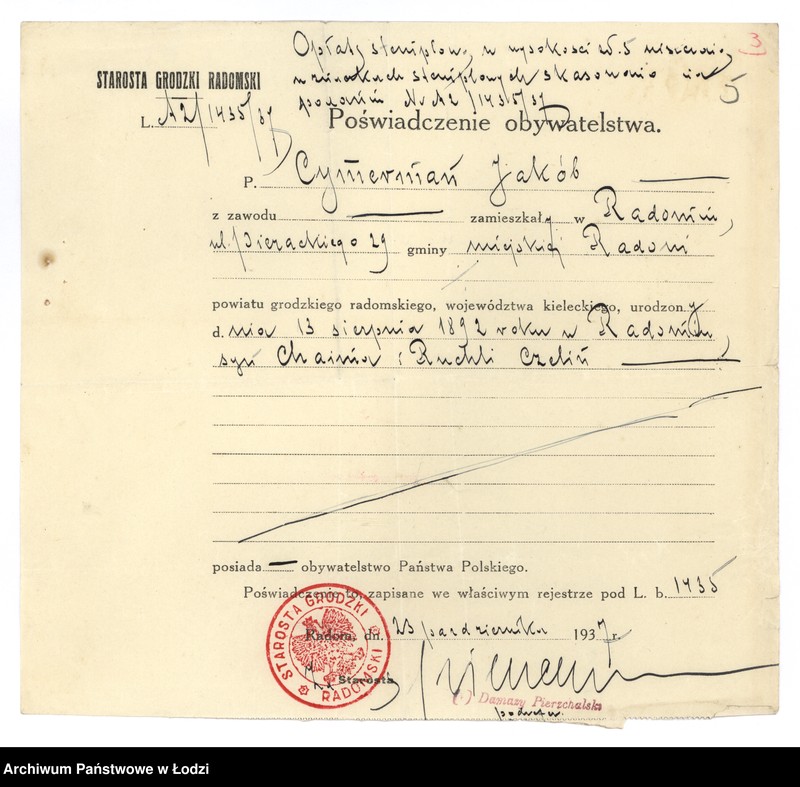 Opłatę stemplową w wysokości zł. 5 uiszczono
w znaczkach stemplowych skasowano na
podaniu Nr A2/1435/37
3
5
STAROSTA GRODZKI RADOMSKI
L. A2/1435/37
Poświadczenie obywatelstwa.
P. Cymerman Jakób
z zawodu — zamieszkały w Radomiu,
ul. Pierackiego 29 gminy miejskiej Radom
powiatu grodzkiego radomskiego, województwa kieleckiego, urodzony
d. nia 13 sierpnia 1892 roku w Radomiu,
syn Chaima i Ruchli Czelin
posiada — obywatelstwo Państwa Polskiego.
Poświadczenie to, zapisane we właściwym rejestrze pod L. b. 1435
Radom, dn. 23 października 1937 r.
STAROSTA GRODZKI RADOMSKI
Starosta
(-) Damazy Pierzchalski
Archiwum Państwowe w Łodzi